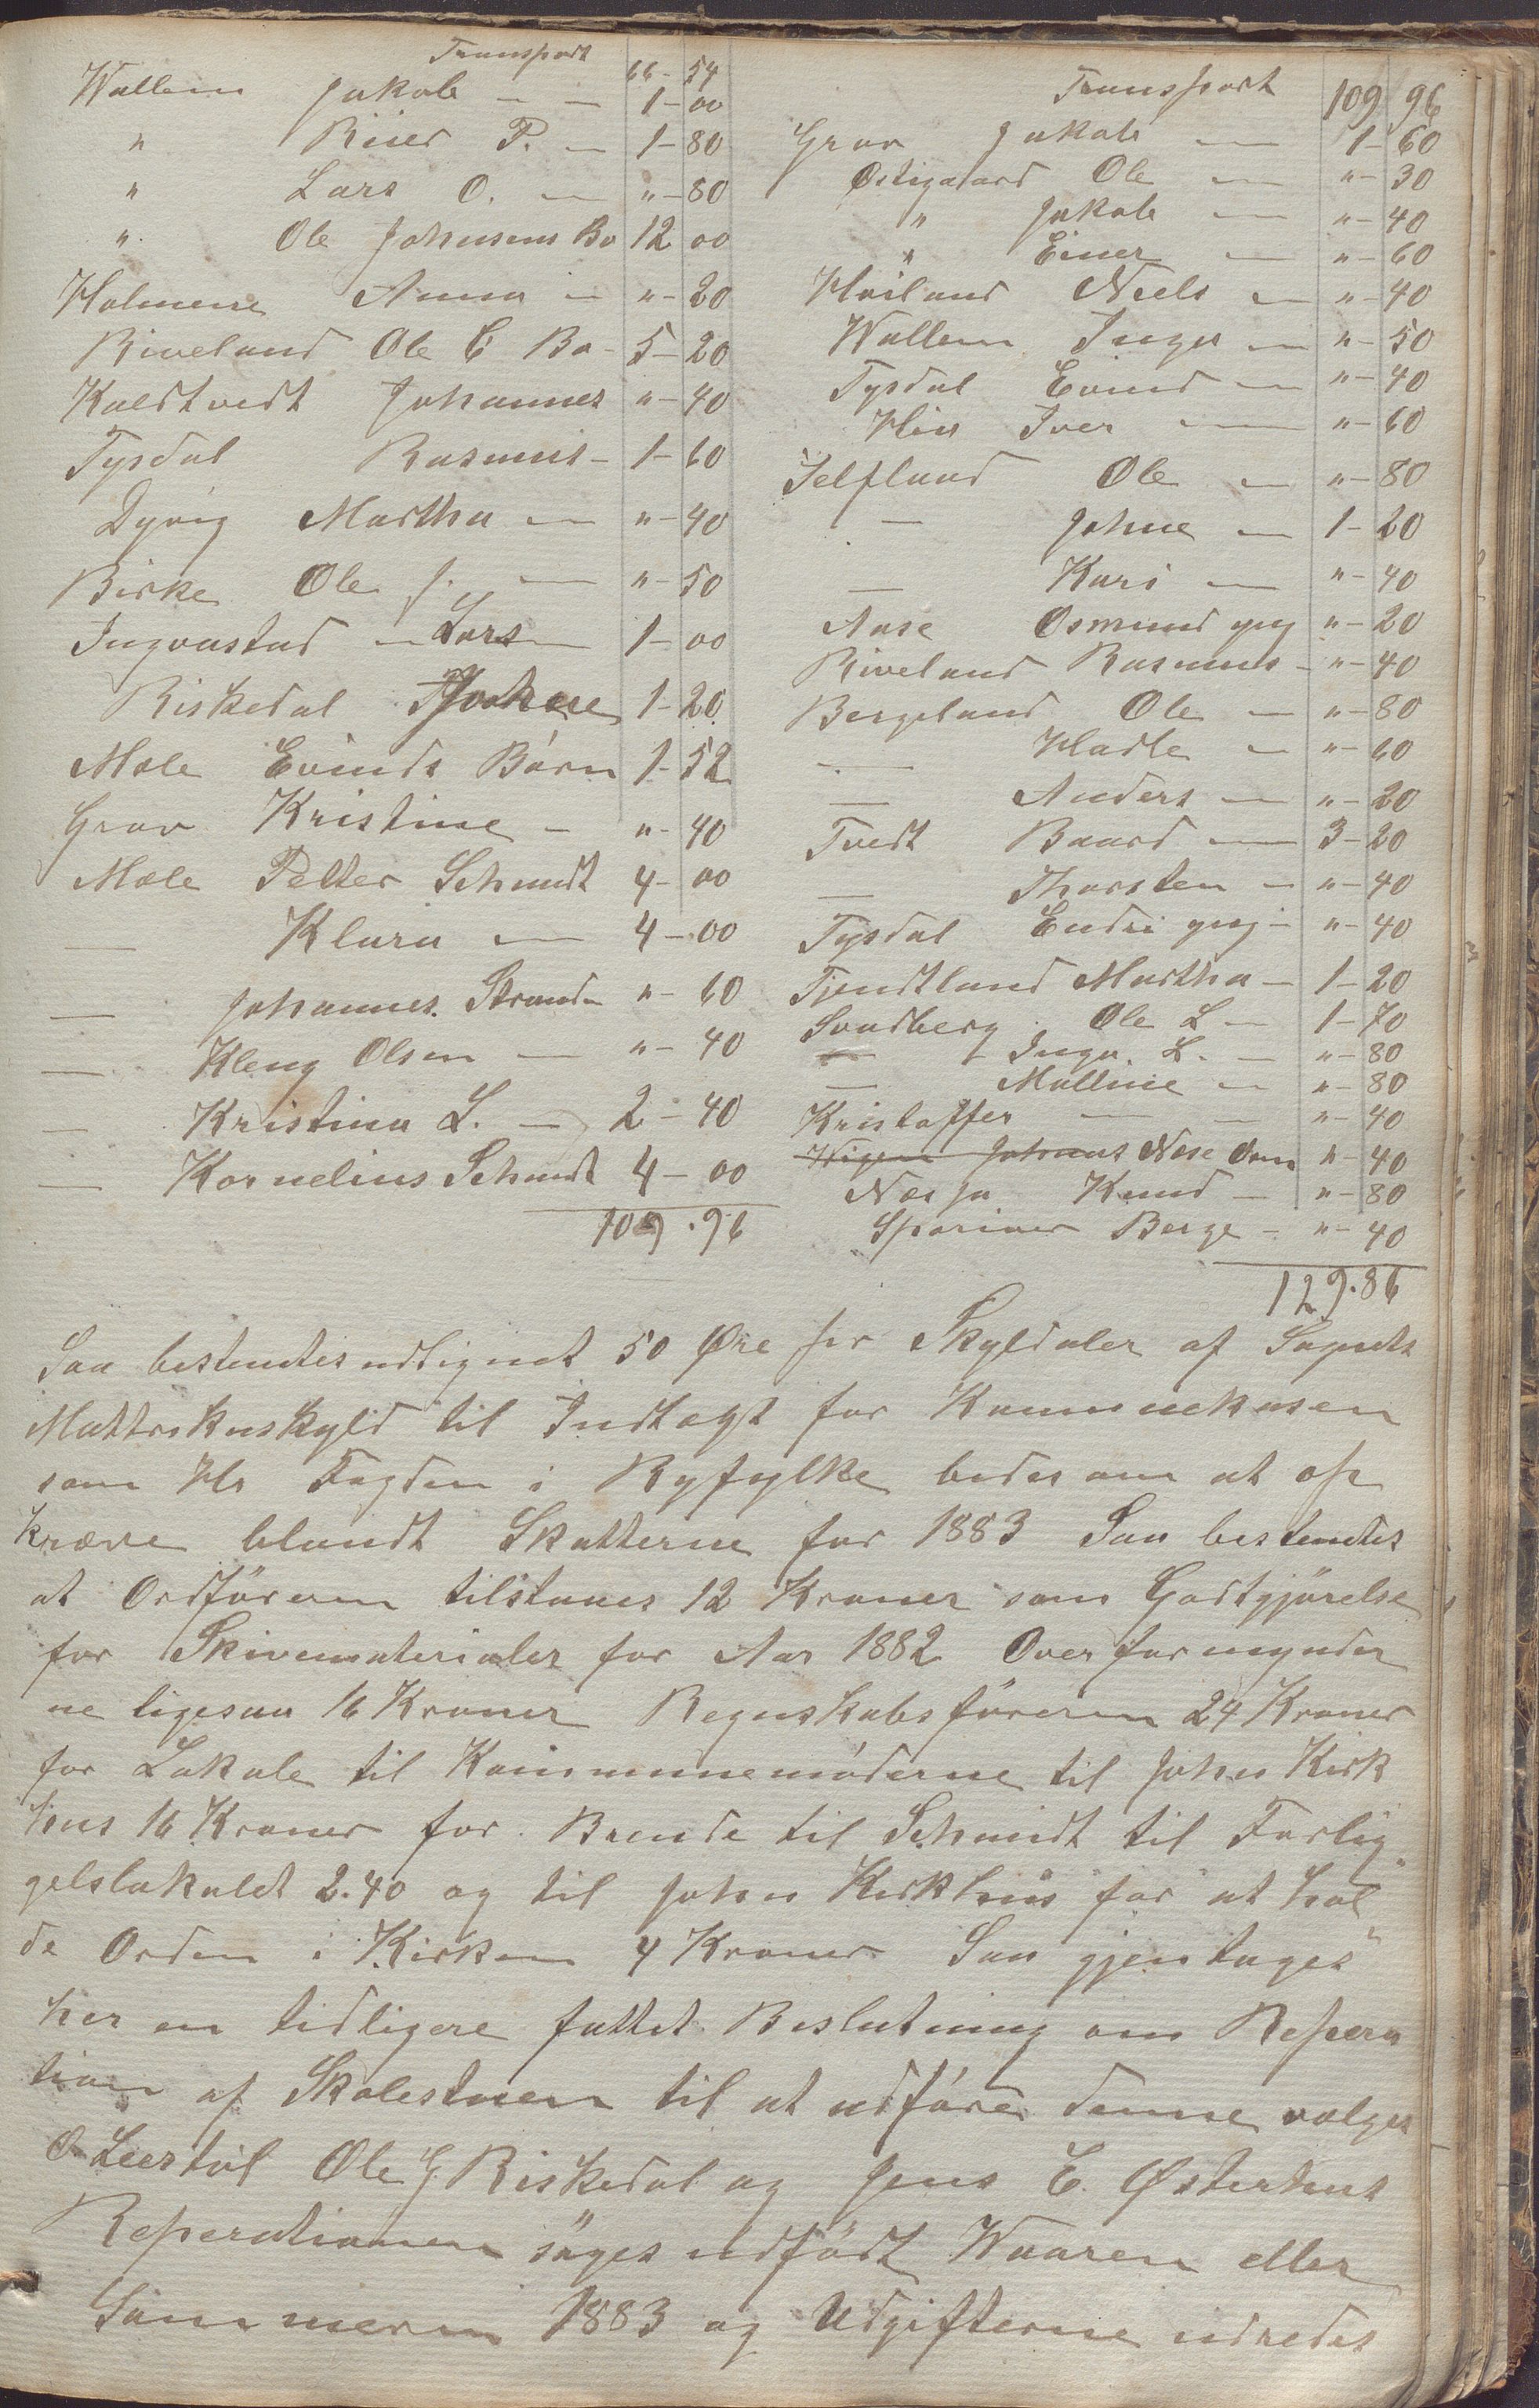 Transport 66-54
Wallem Jakob — — 1-00
" Riser P. — 1-80
" Lars O. — "-80
" Ole Johnsens Bo 12 00
Holmene Anna — "-20
Riveland Ole E Bo - 5-20
Kaldtvedt Johannes "-40
Tysdal Rasmus - 1-60
Dyvig Martha — "-40
Birke Ole J. — "-50
Ingvastad — Lars — 1-00
Riskedal 1-20
Mæle Evinds Børn 1-52
Grav Kristine - "-40
Mæle Petter Schmidt 4-00
— Klara — 4-00
— Johannes Strand - "-60
— Kleng Olsen — "-40
— Kristina L. — 2-40
— Kornelius Schmidt 4-00
109.96
Transport 109 96
Grav Jakob — 1-60
Østigaard Ole — "-30
" Jakob — "-40
" Einer — "-60
Høiland Niels — "-40
Wallem Inger — "-50
Tysdal Evind — "-40
Hia Iver — "-60
Jelfland Ole — "-80
— Johne — 1-20
— Kari — "-40
Aase Osmund yng "-20
Riveland Rasmus - "-40
Bergeland Ole — "-80
— Hadle — "-60
— Anders — "-20
Tvedt Baard — 3-20
— Thorsten — "-40
Tysdal Endri yng - "-40
Tjendtland Martha - 1-20
Svadberg Ole L — 1-70
— Inga. L. — "-80
— Malline — "-80
Kristoffer — — "-40
Wigen Johans Næse "-40
Næsja Knud — "-80
Berge - "-40
129.86
Saa bestemtes udlignet 50 Øre pr Skyldaler af Sognets
Mattrikuskyld til Indtægt for Kommunekasen
som Hr Fogden i Ryfylke bedes om at op
kræve blandt Skatterne for 1883 Saa bestemtes
at Ordføreren tilstaaes 12 Kroner som Godtgjørelse
for Skivematerialer for Aar 1882 Overformynder
ne ligesaa 16 Kroner Regnskabsføreren 24 Kroner
for Lokale til Kommunemøderne til John Kirk
hus 16 Kroner for Brende til Schmidt til Forlig
gelslokalet 2.40 og til John Kirkhus for at hol"
de Orden i Kirken 4 Kroner Saa gjentages"
her en tidligere fattet Beslutning om Repera
tion af Skolestuen til at udføre denne vælges
O Leestøl Ole G Riskedal og Jens E. Østerhus
Reperationen søges udført Waaren eller
Sommeren 1883 og Udgifterne udredes